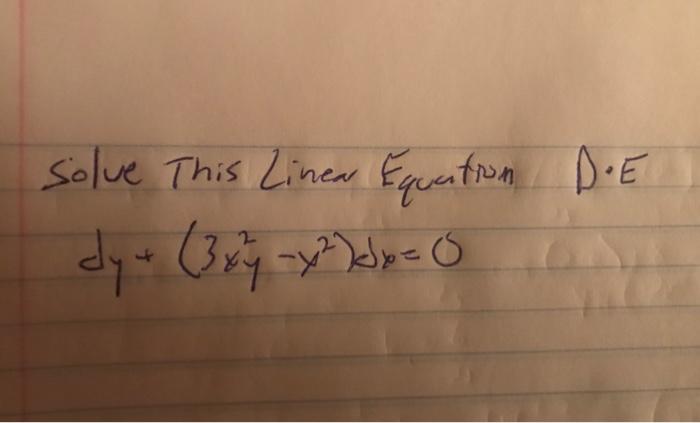 Solve This Linear Equation D.E
dy + (3x²y - x²)dx = 0